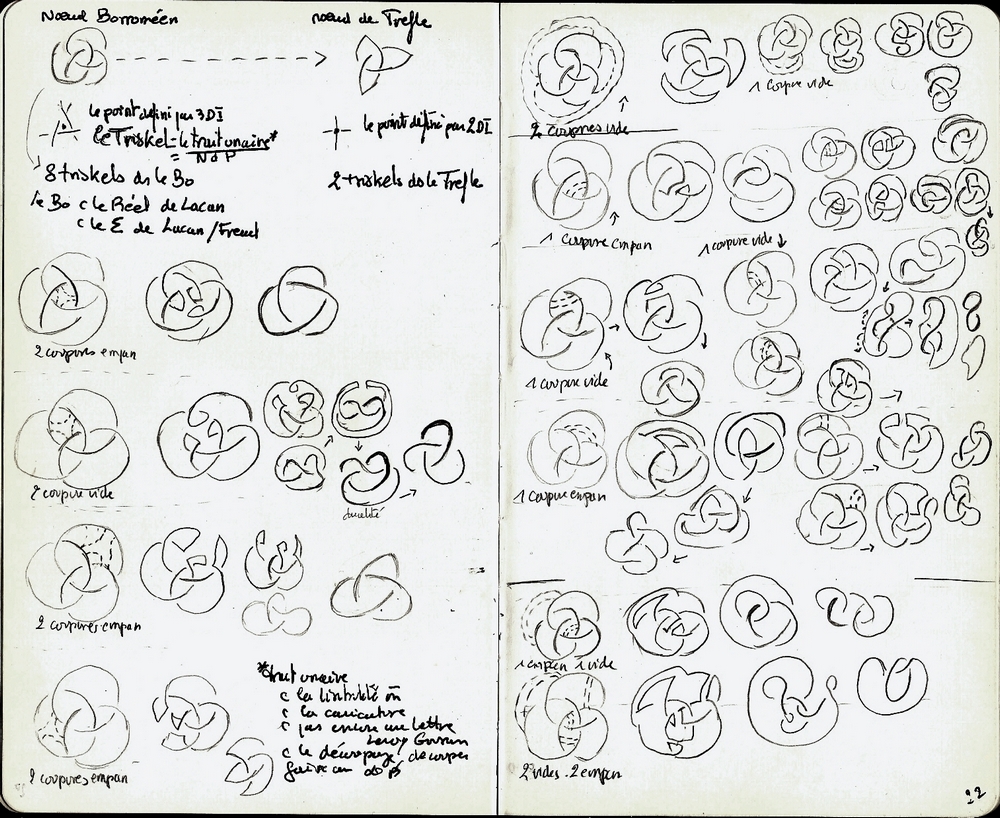 Nœud Borroméen
nœud de Trefle
le point défini par 3DI
le Triskel = le trait unaire*
= NdP
le point défini par 2DI
8 triskels ds le Bo
2 triskels ds le Trefle
le Bo c le Réel de Lacan
c le Σ de Lacan / Freud
2 coupures empan
2 coupure vide
dualité
2 coupures empan
2 coupures empan
*trait unaire
c la
c la caricature
c pas encore une lettre
c le découpage, decouper
2 coupures vide
1 coupure vide
1 coupure empan
1 coupure vide
1 coupure vide
1 coupure empan
1 empan 1 vide
2 vides . 2 empan
22